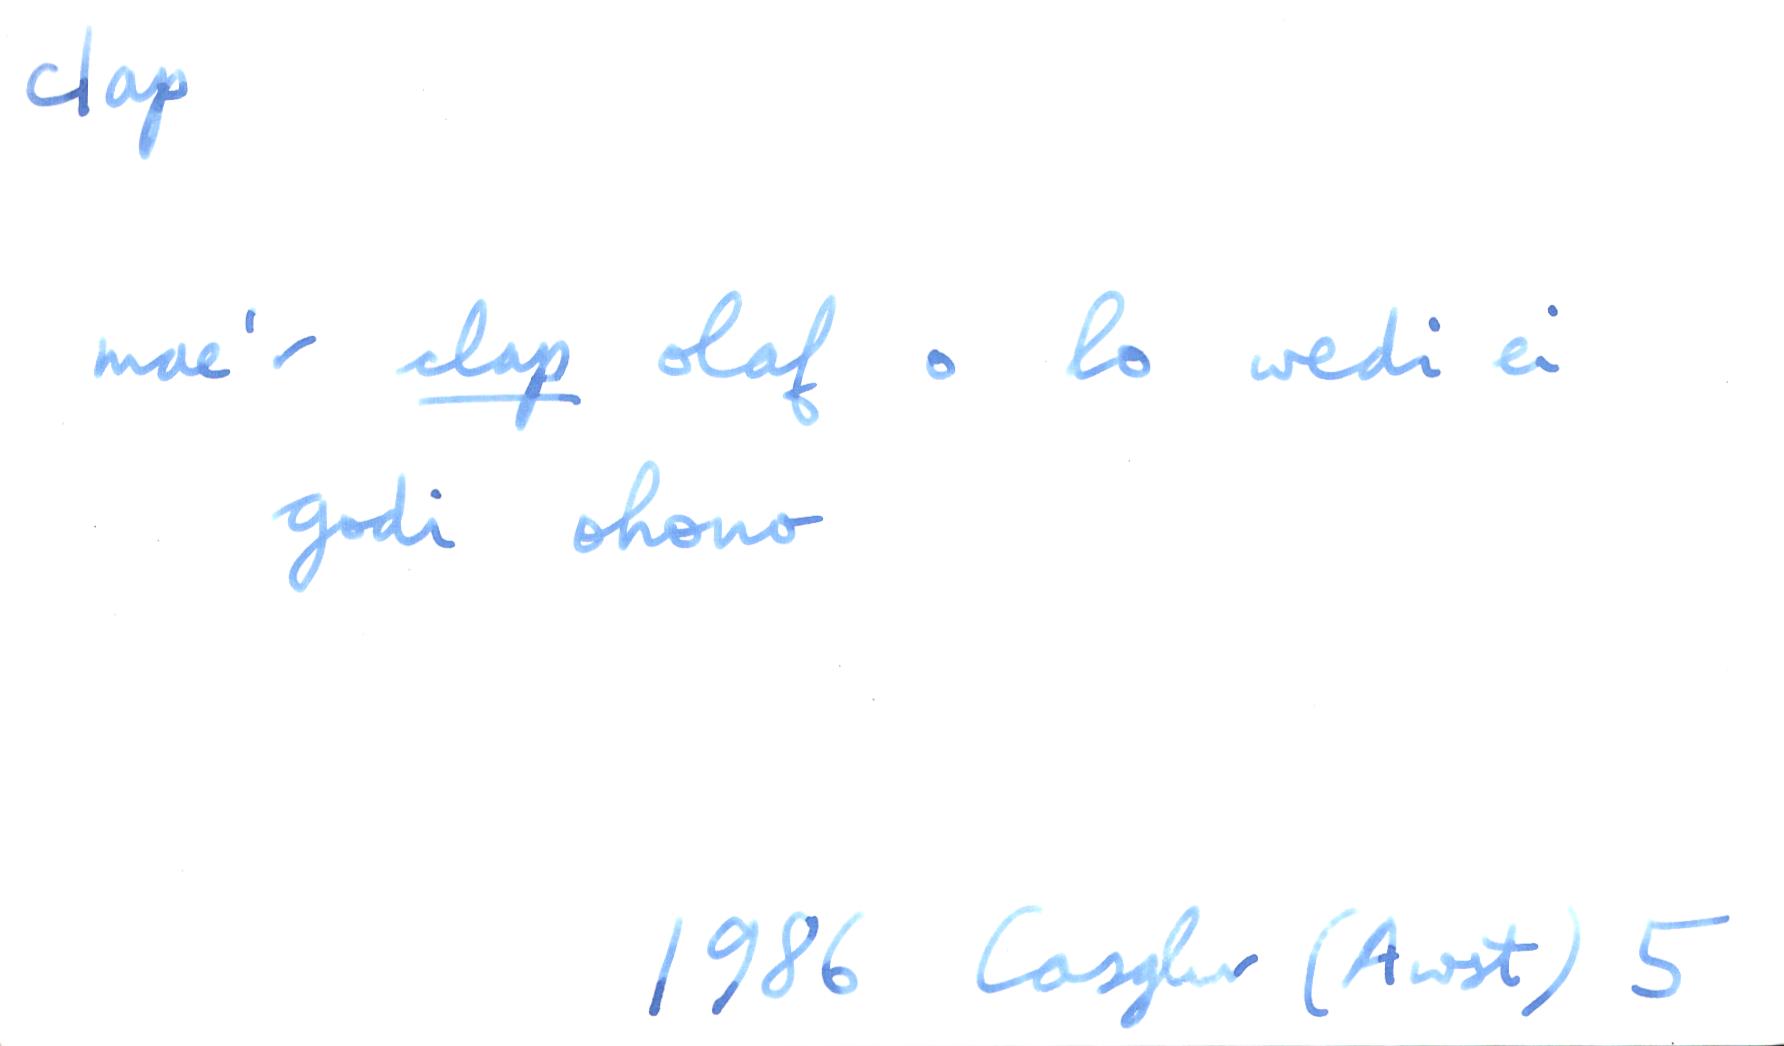 clap
mae'r clap olaf o lo wedi ei
godi ohono
1986 Casglwr (Awst) 5